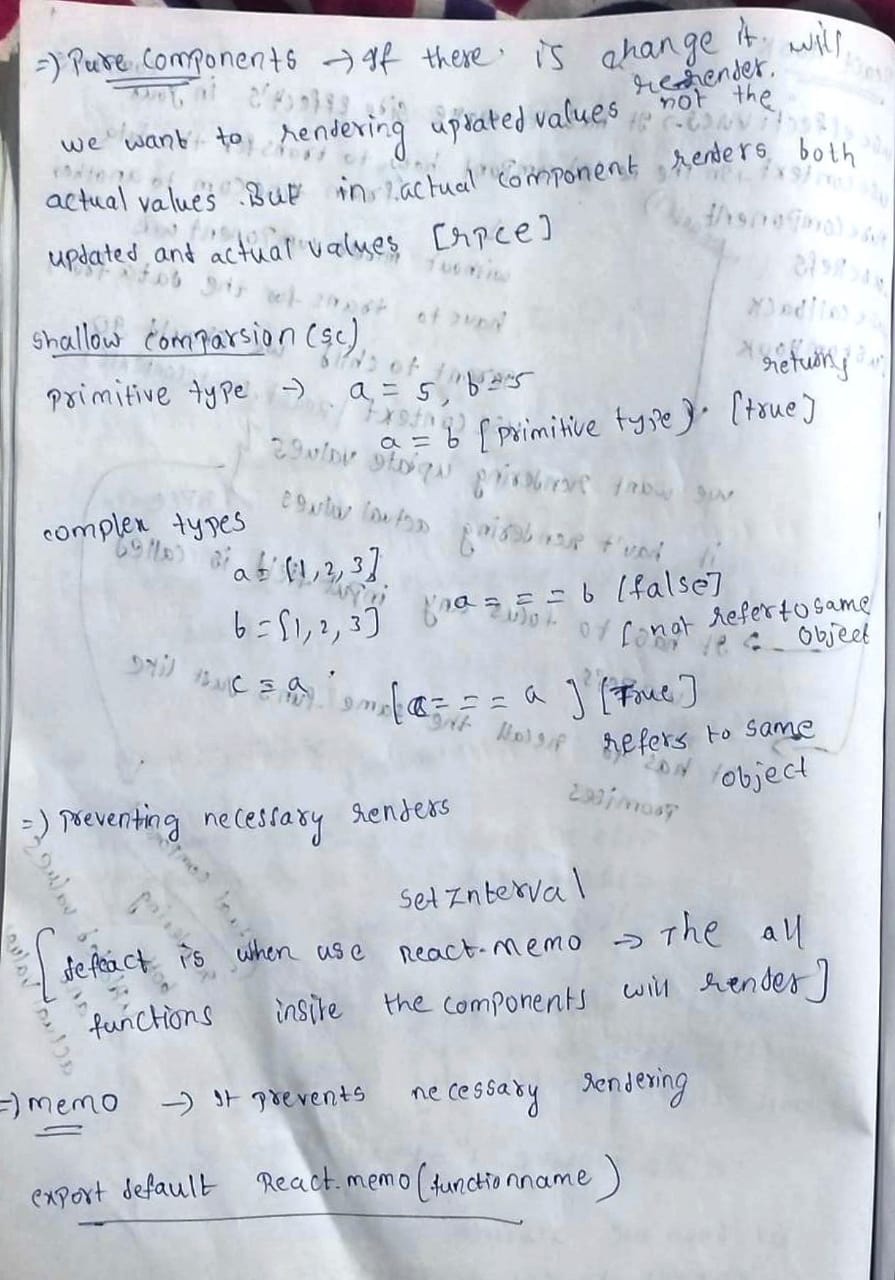 =) Pure Components → If there is change it will
rerender.
we want to rendering updated values not the
actual values. But in actual component renders both
updated and actual values [rpce]
shallow comparsion (sc)
primitive type → a = 5, b = 5 returns
a = b [primitive type]. [true]
complex types
a = [1, 2, 3]
b = [1, 2, 3] a = = = b [false]
[not refer to same
object
c = a [c = = = a ] [True]
refers to same
object
=) preventing necessary renders
setInterval
[defeact is when use React.memo → The all
functions insite the components will render]
=) memo → It prevents necessary rendering
export default React.memo(functionname)